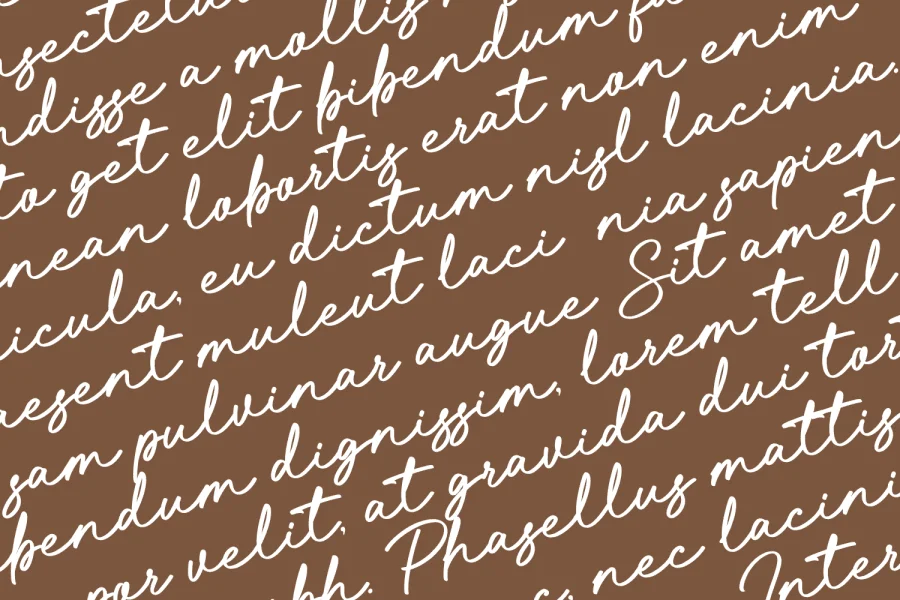 nsectetur
ndisse a mollis
to get elit bibendum fa
nean lobortis erat non enim
icula, eu dictum nisl lacinia.
aesent muleut laci nia sapien
sam pulvinar augue Sit amet
bendum dignissim, lorem tell
por velit, at gravida dui tor
bh. Phasellus mattis
c, nec lacini
Inter